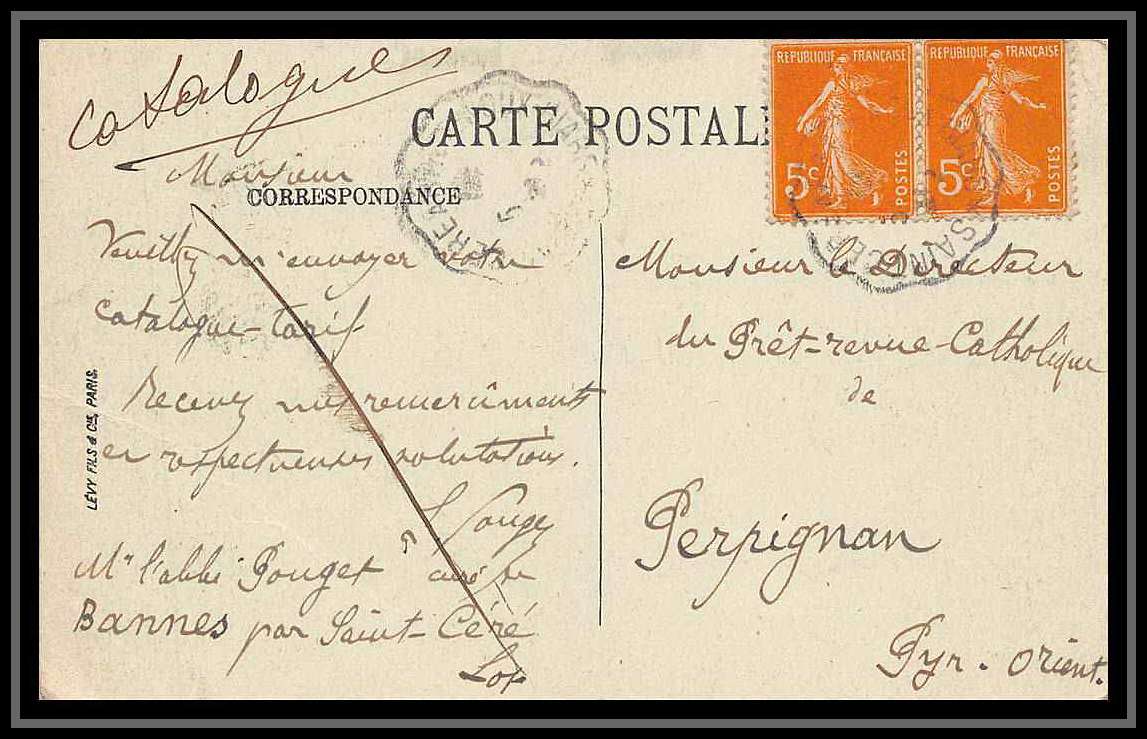 Catalogues
CARTE POSTALE
Monsieur
CORRESPONDANCE
Veuillez m'envoyer votre
catalogue-tarif
Recevez mes remerciments
et respectueuses salutations.
Pouget
Mr l'abbé Pouget curé de
Bannes par Saint-Céré
Lot
LÉVY FILS & Cie, PARIS.
REPUBLIQUE FRANÇAISE
5c
POSTES
REPUBLIQUE FRANÇAISE
5c
POSTES
Monsieur le Directeur
du Prêt-revue-Catholique
de
Perpignan
Pyr. Orient.